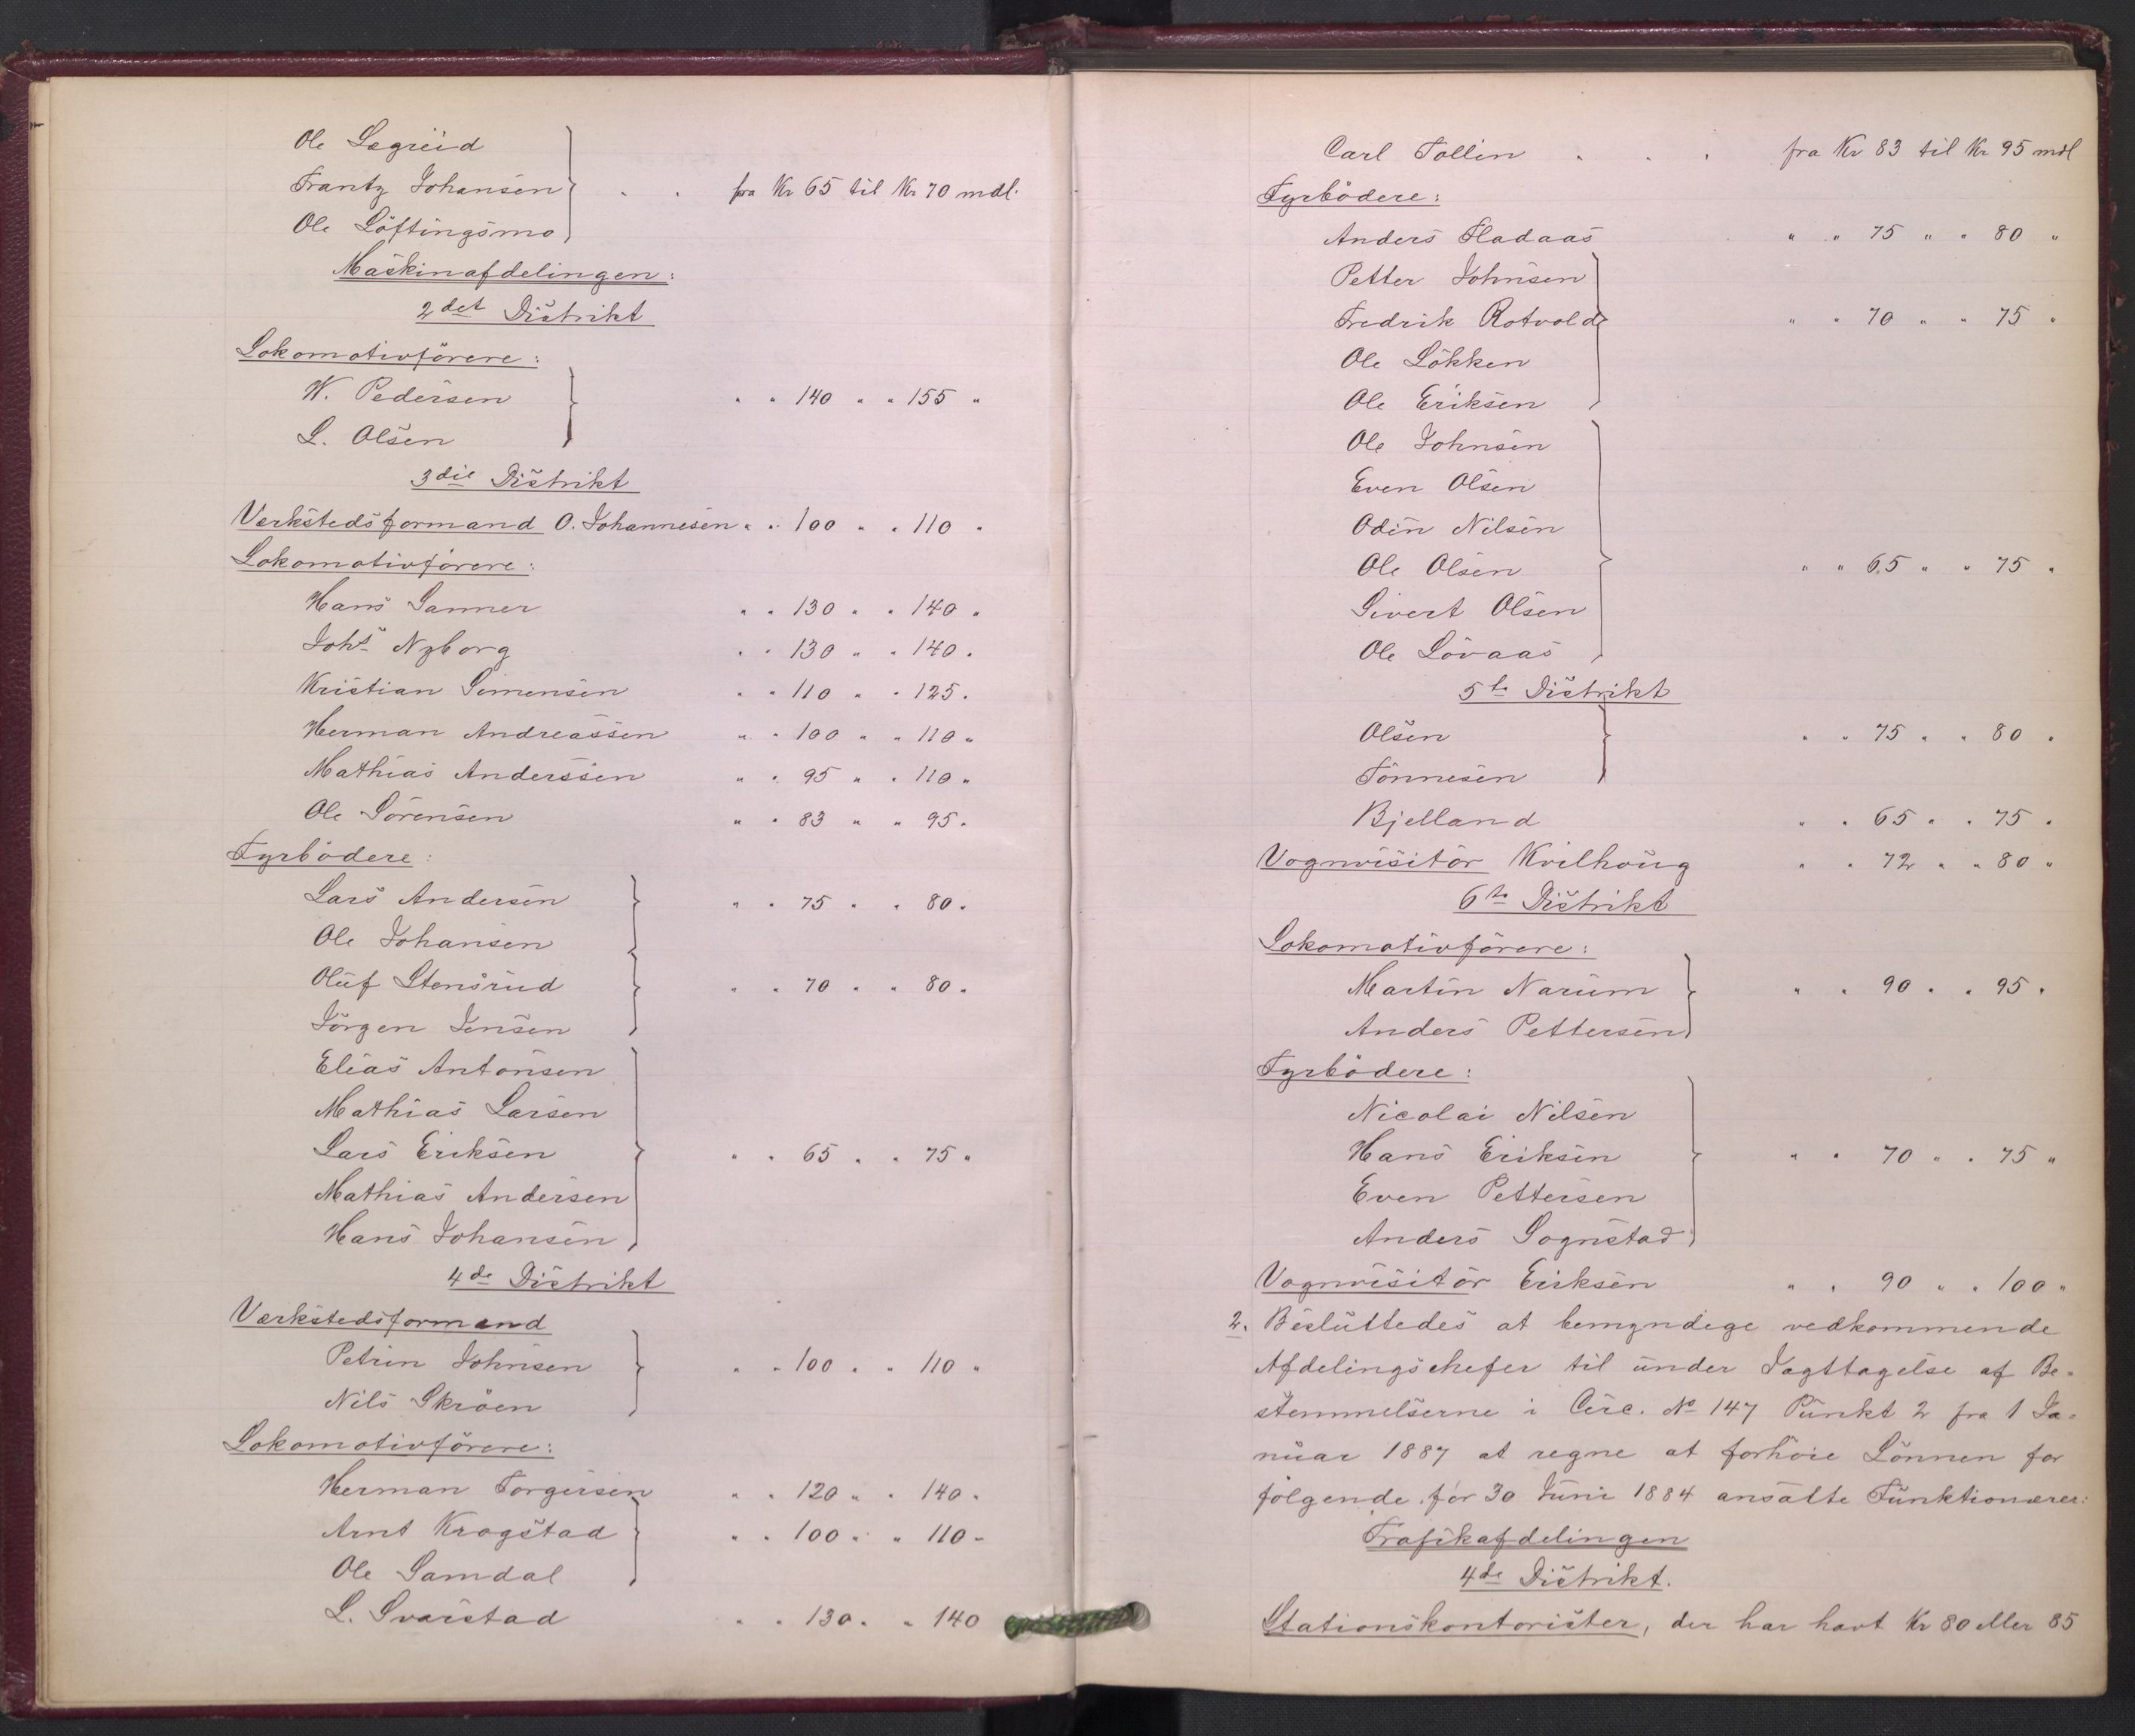 Ole Legreid
Frantz Johansen } " " fra Kr 65 til Kr 70 mdl.
Ole Löftingsmo
Maskinafdelingen:
2det Distrikt
Lokomotivförere:
W. Pedersen } " " 140 " " 155 "
L. Olsen
3die Distrikt
Værkstedsformand O. Johannesen " " 100 " " 110 "
Lokomotivförere:
Hans Sanner " " 130 " " 140 "
Johs Nyborg " " 130 " " 140 "
Kristian Simensen " " 110 " " 125 "
Herman Andreassen " " 100 " " 110 "
Mathias Anderssen " " 95 " " 110 "
Ole Sörensen " " 83 " " 95 "
Fyrbödere:
Lars Andersen } " " 75 " " 80 "
Ole Johansen
Oluf Stensrud } " " 70 " " 80 "
Jörgen Jensen
Elias Antonsen
Mathias Larsen
Lars Eriksen } " " 65 " " 75 "
Mathias Andersen
Hans Johansen
4de Distrikt
Værkstedsformand
Petrin Johnsen } " " 100 " " 110 "
Nils Skröen
Lokomotivförere:
Herman Torgersen " " 120 " " 140 "
Arnt Krogstad } " " 100 " " 110 "
Ole Samdal
L. Svarstad " " 130 " " 140
Carl Tollin " " " fra Kr 83 til Kr 95 mdl
Fyrbödere:
Anders Fladaas " " 75 " " 80 "
Petter Johnsen
Fredrik Rotvold } " " 70 " " 75 "
Ole Lökken
Ole Eriksen
Ole Johnsen
Even Olsen
Odin Nilsen
Ole Olsen } " " 65 " " 75 "
Sivert Olsen
Ole Lövaas
5te Distrikt
Olsen } " " 75 " " 80 "
Tönnesen
Bjelland " " 65 " " 75 "
Vognvisitör Kvilhoug " " 72 " " 80 "
6te Distrikt
Lokomotivförere:
Martin Narum } " " 90 " " 95 "
Anders Pettersen
Fyrbödere:
Nicolai Nilsen
Hans Eriksen } " " 70 " " 75 "
Even Pettersen
Anders Sognstad
Vognvisitör Eriksen " " 90 " " 100 "
2. Besluttedes at bemyndige vedkommende
Afdelingschefer til under Iagttagelse af Be-
stemmelserne i Circ. No 147 Punkt 2 fra 1 Ja-
nuar 1887 at regne at forhöie Lönnen for
fölgende för 30 Juni 1884 ansatte Funktionærer:
Trafikafdelingen
4de Distrikt.
Stationskontorister, der har havt Kr 80 eller 85